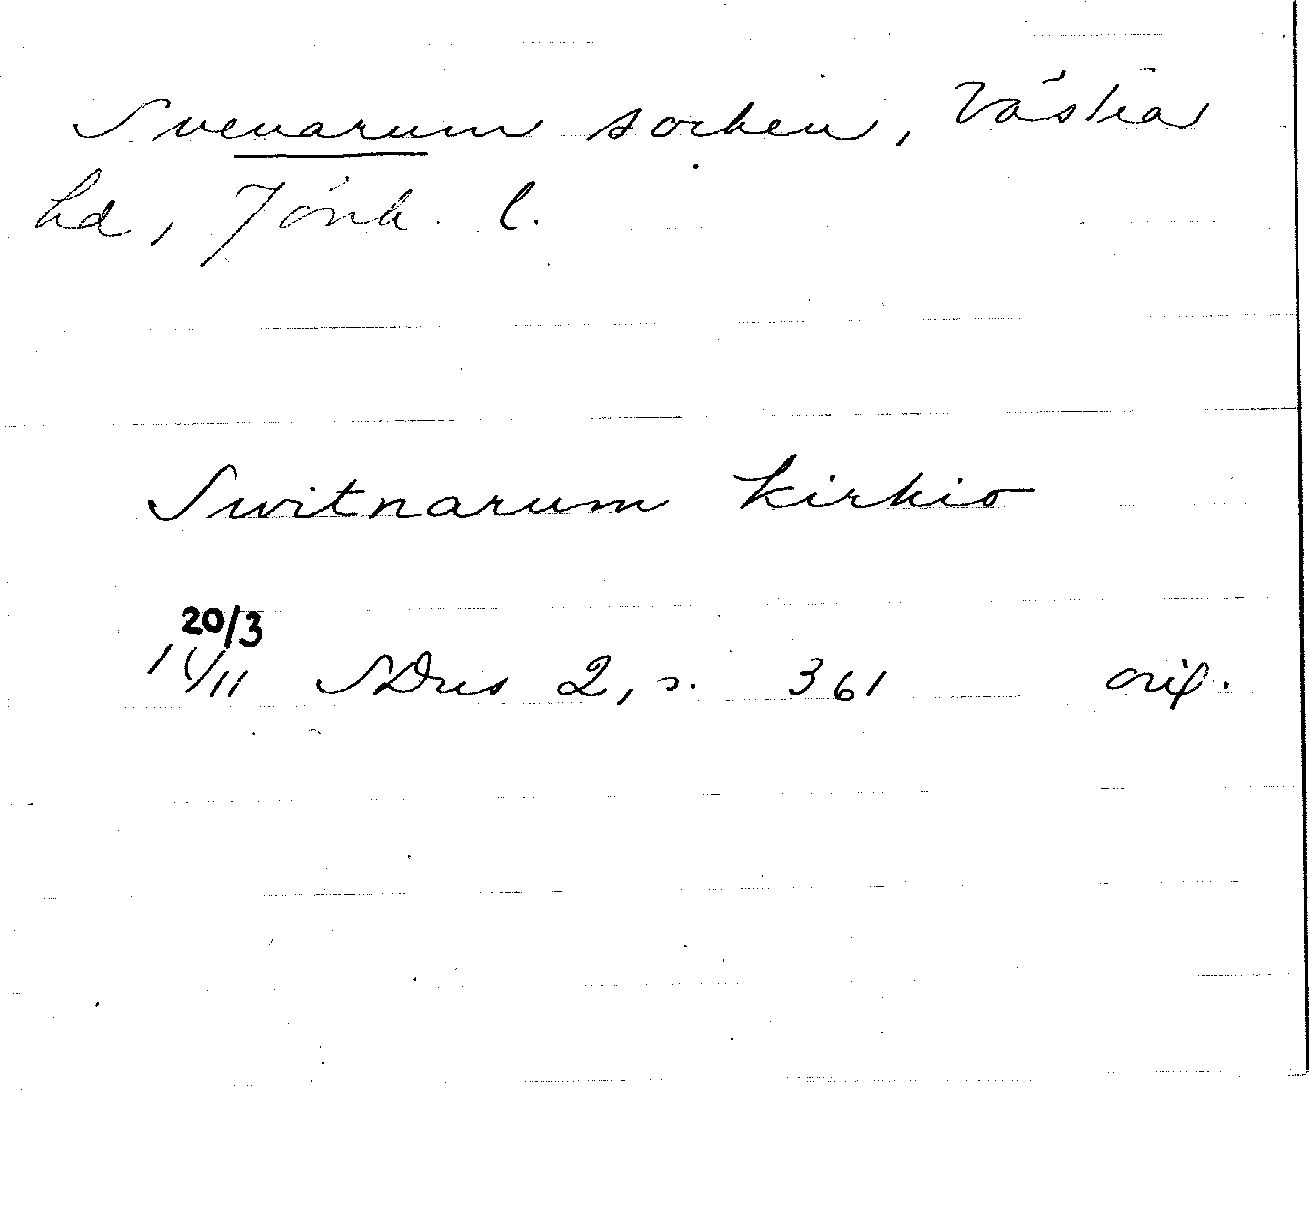 Svenarum socken, Västra
hd, Jönk. l.
Switnarum kirkio
20/3
1411 SDns 2, s. 361 orig.